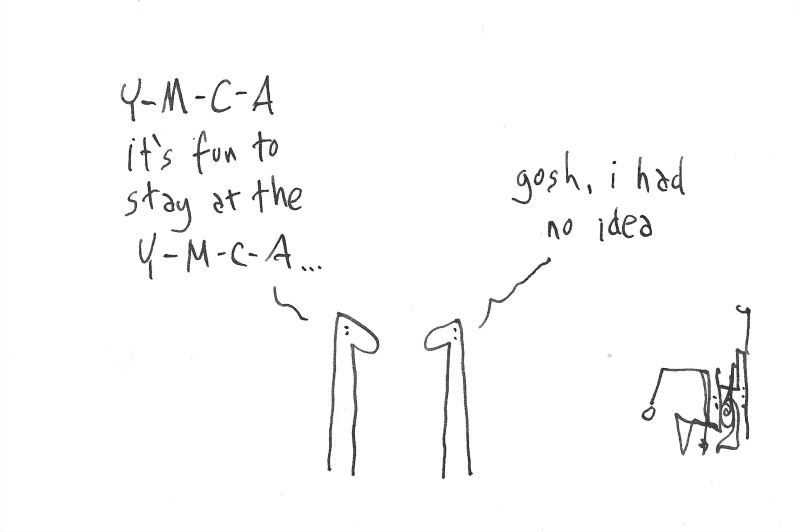 Y-M-C-A
it's fun to
stay at the
Y-M-C-A...
gosh, i had
no idea